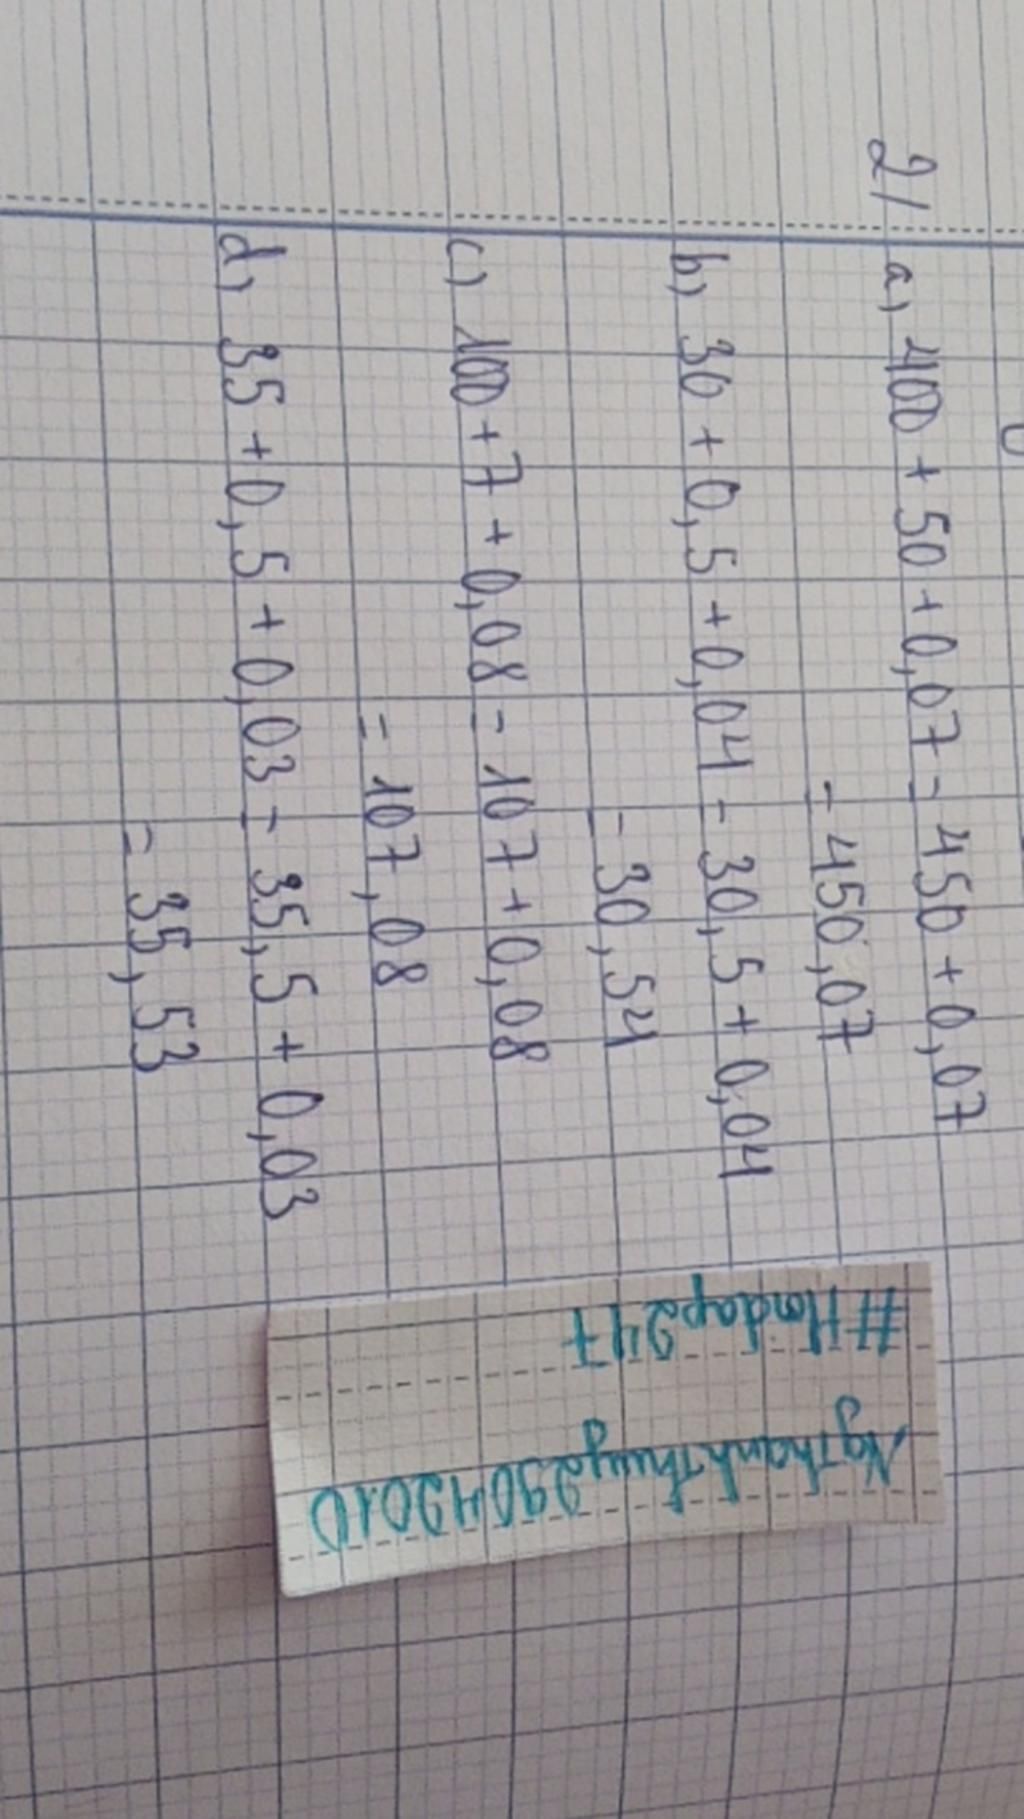 2/ a, 400 + 50 + 0,07 = 450 + 0,07
= 450,07
b) 30 + 0,5 + 0,04 = 30,5 + 0,04
= 30,54
c) 100 + 7 + 0,08 = 107 + 0,08
= 107,08
d) 35 + 0,5 + 0,03 = 35,5 + 0,03
= 35,53
#Hoidap247
NgThanhThuy29042010